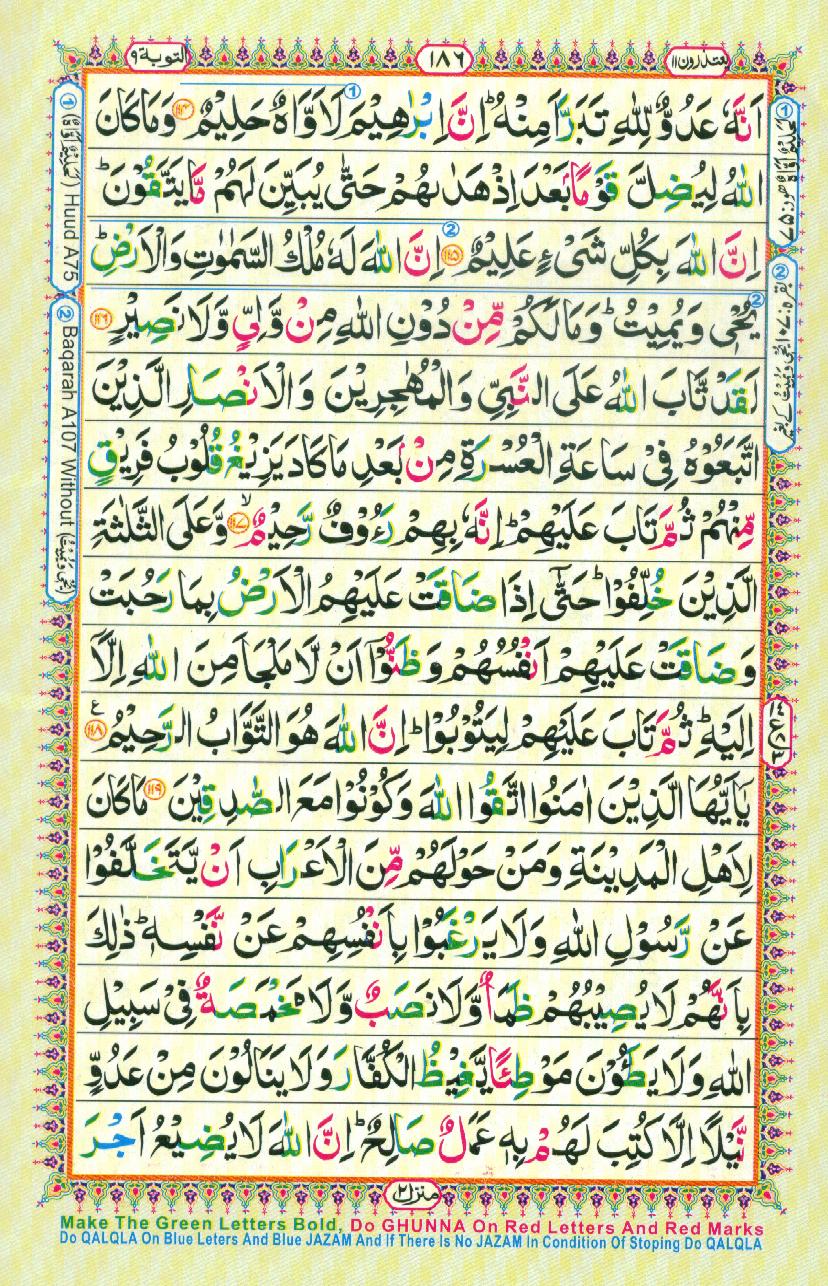 یعتذرون۱۱
۱۸۶
التوبة۹
اَنَّهٗ عَدُوٌّ لِّلّٰهِ تَبَرَّاَ مِنْهُ ؕ اِنَّ اِبْرٰهِیْمَ لَاَوَّاهٌ حَلِیْمٌ ﴿۱۱۴﴾ وَمَا كَانَ
اللّٰهُ لِیُضِلَّ قَوْمًۢا بَعْدَ اِذْ هَدٰىهُمْ حَتّٰی یُبَیِّنَ لَهُمْ مَّا یَتَّقُوْنَ ؕ
اِنَّ اللّٰهَ بِكُلِّ شَیْءٍ عَلِیْمٌ ﴿۱۱۵﴾ اِنَّ اللّٰهَ لَهٗ مُلْكُ السَّمٰوٰتِ وَالْاَرْضِ ؕ
یُحْیٖ وَیُمِیْتُ ؕ وَمَا لَكُمْ مِّنْ دُوْنِ اللّٰهِ مِنْ وَّلِیٍّ وَّلَا نَصِیْرٍ ﴿۱۱۶﴾
لَقَدْ تَّابَ اللّٰهُ عَلَی النَّبِیِّ وَالْمُهٰجِرِیْنَ وَالْاَنْصَارِ الَّذِیْنَ
اتَّبَعُوْهُ فِیْ سَاعَةِ الْعُسْرَةِ مِنْۢ بَعْدِ مَا كَادَ یَزِیْغُ قُلُوْبُ فَرِیْقٍ
مِّنْهُمْ ثُمَّ تَابَ عَلَیْهِمْ ؕ اِنَّهٗ بِهِمْ رَءُوْفٌ رَّحِیْمٌ ﴿۱۱۷﴾ۙ وَّعَلَی الثَّلٰثَةِ
الَّذِیْنَ خُلِّفُوْا ؕ حَتّٰۤی اِذَا ضَاقَتْ عَلَیْهِمُ الْاَرْضُ بِمَا رَحُبَتْ
وَضَاقَتْ عَلَیْهِمْ اَنْفُسُهُمْ وَظَنُّوْۤا اَنْ لَّا مَلْجَاَ مِنَ اللّٰهِ اِلَّاۤ
اِلَیْهِ ؕ ثُمَّ تَابَ عَلَیْهِمْ لِیَتُوْبُوْا ؕ اِنَّ اللّٰهَ هُوَ التَّوَّابُ الرَّحِیْمُ ﴿۱۱۸﴾ ع
یٰۤاَیُّهَا الَّذِیْنَ اٰمَنُوا اتَّقُوا اللّٰهَ وَكُوْنُوْا مَعَ الصّٰدِقِیْنَ ﴿۱۱۹﴾ مَا كَانَ
لِاَهْلِ الْمَدِیْنَةِ وَمَنْ حَوْلَهُمْ مِّنَ الْاَعْرَابِ اَنْ یَّتَخَلَّفُوْا
عَنْ رَّسُوْلِ اللّٰهِ وَلَا یَرْغَبُوْا بِاَنْفُسِهِمْ عَنْ نَّفْسِهٖ ؕ ذٰلِكَ
بِاَنَّهُمْ لَا یُصِیْبُهُمْ ظَمَاٌ وَّلَا نَصَبٌ وَّلَا مَخْمَصَةٌ فِیْ سَبِیْلِ
اللّٰهِ وَلَا یَطَـُٔوْنَ مَوْطِئًا یَّغِیْظُ الْكُفَّارَ وَلَا یَنَالُوْنَ مِنْ عَدُوٍّ
نَّیْلًا اِلَّا كُتِبَ لَهُمْ بِهٖ عَمَلٌ صَالِحٌ ؕ اِنَّ اللّٰهَ لَا یُضِیْعُ اَجْرَ
① Huud A75
② Baqarah A107 Without
منزل۲
Make The Green Letters Bold, Do GHUNNA On Red Letters And Red Marks
Do QALQLA On Blue Leters And Blue JAZAM And If There Is No JAZAM In Condition Of Stoping Do QALQLA